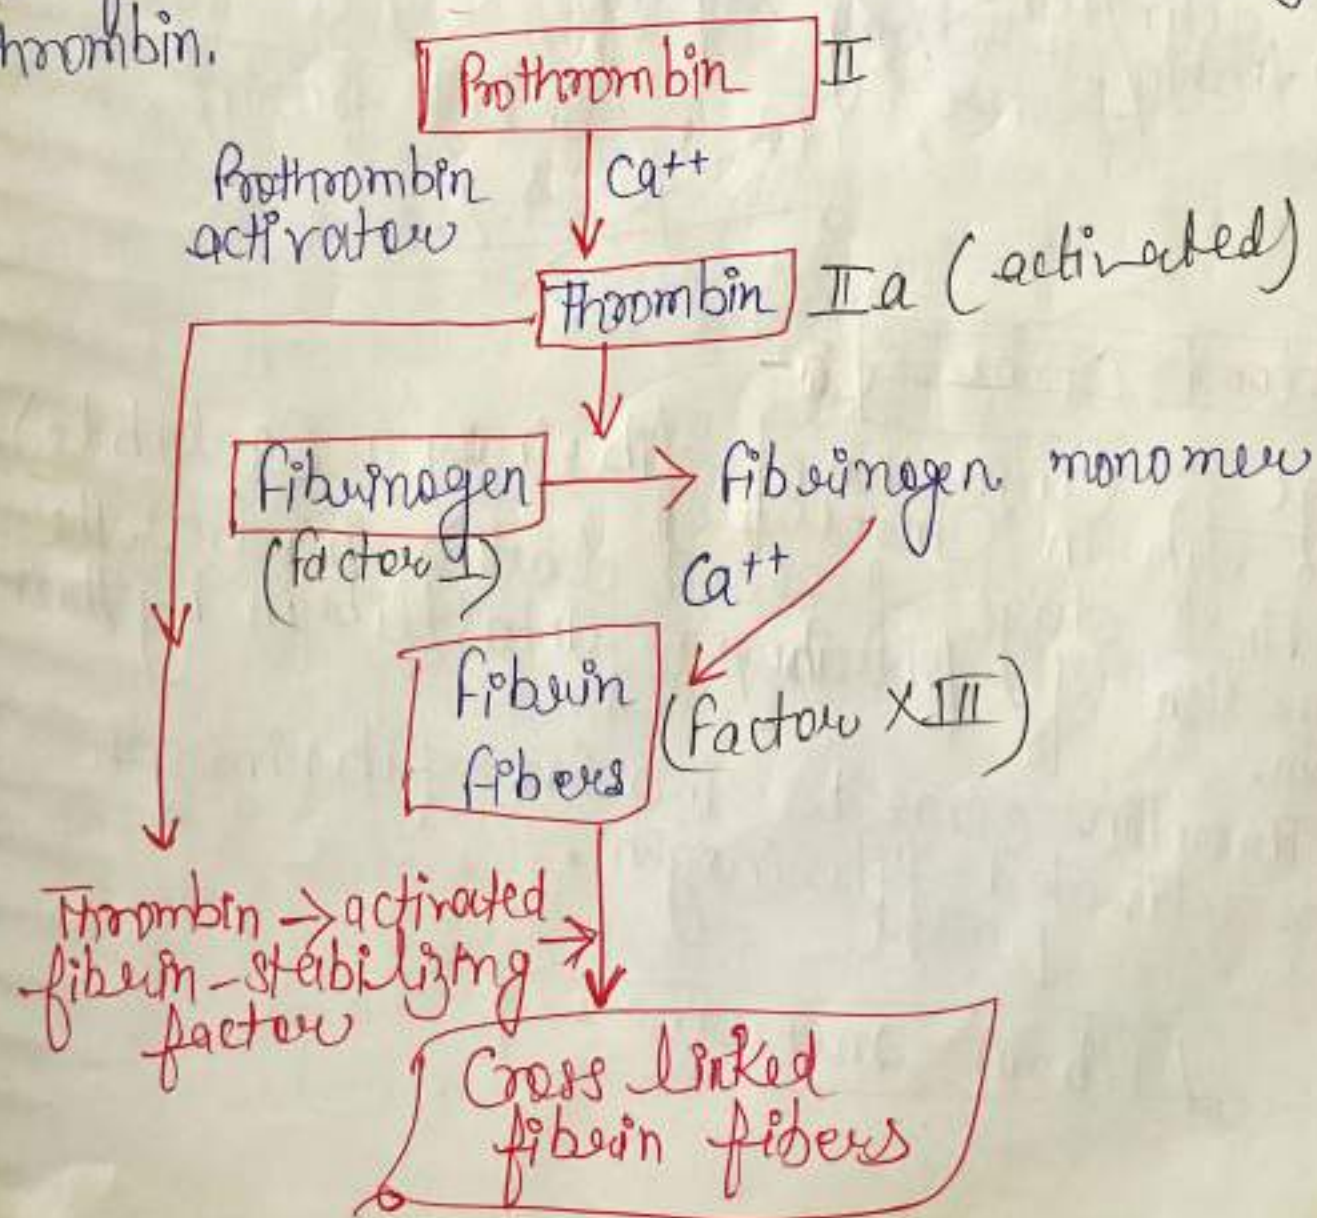 hrombin.
Prothrombin II
Prothrombin
activator
Ca++
Thrombin IIa (activated)
fibrinogen
(factor I)
fibrinogen monomer
Ca++
fibrin
fibers
(factor XIII)
Thrombin → activated
fibrin-stabilizing
factor
Cross linked
fibrin fibers